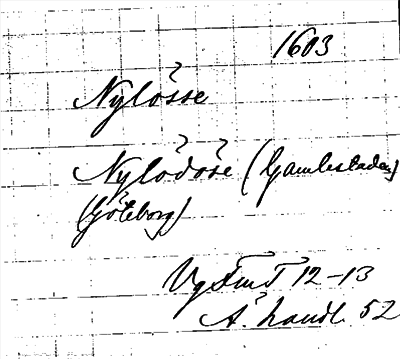 1603
Nylösse
Nylödöse (Gamlestaden)
(Göteborg)
12-13
Ä. handl. 52